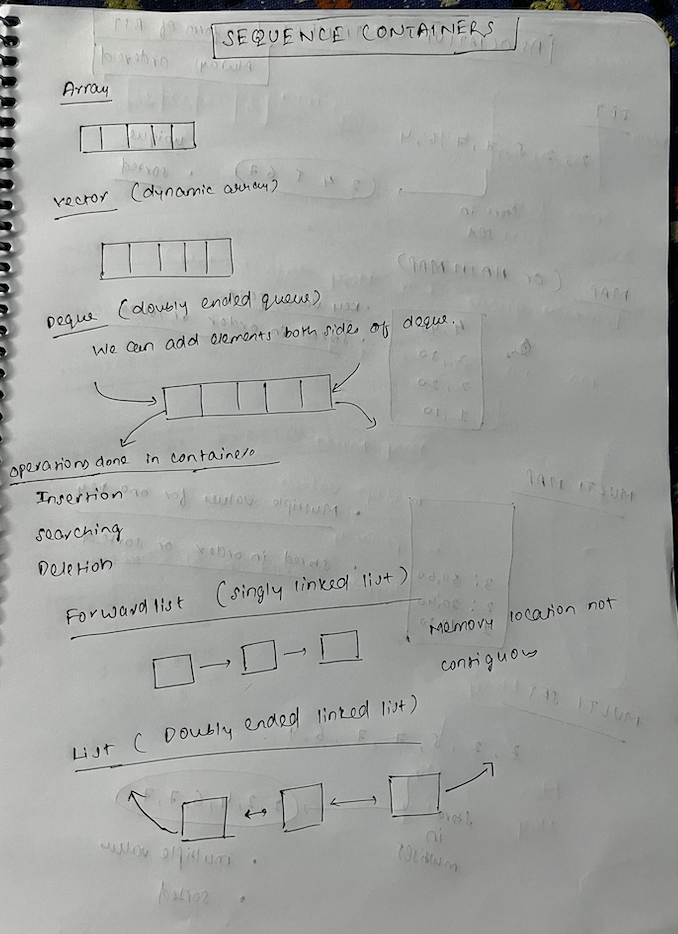 SEQUENCE CONTAINERS
Array
vector (dynamic array)
Deque (doubly ended queue)
We can add elements both sides of deque.
operations done in containers
Insertion
searching
Deletion
Forward list (singly linked list)
Memory location not
contiguous
List ( Doubly ended linked list)